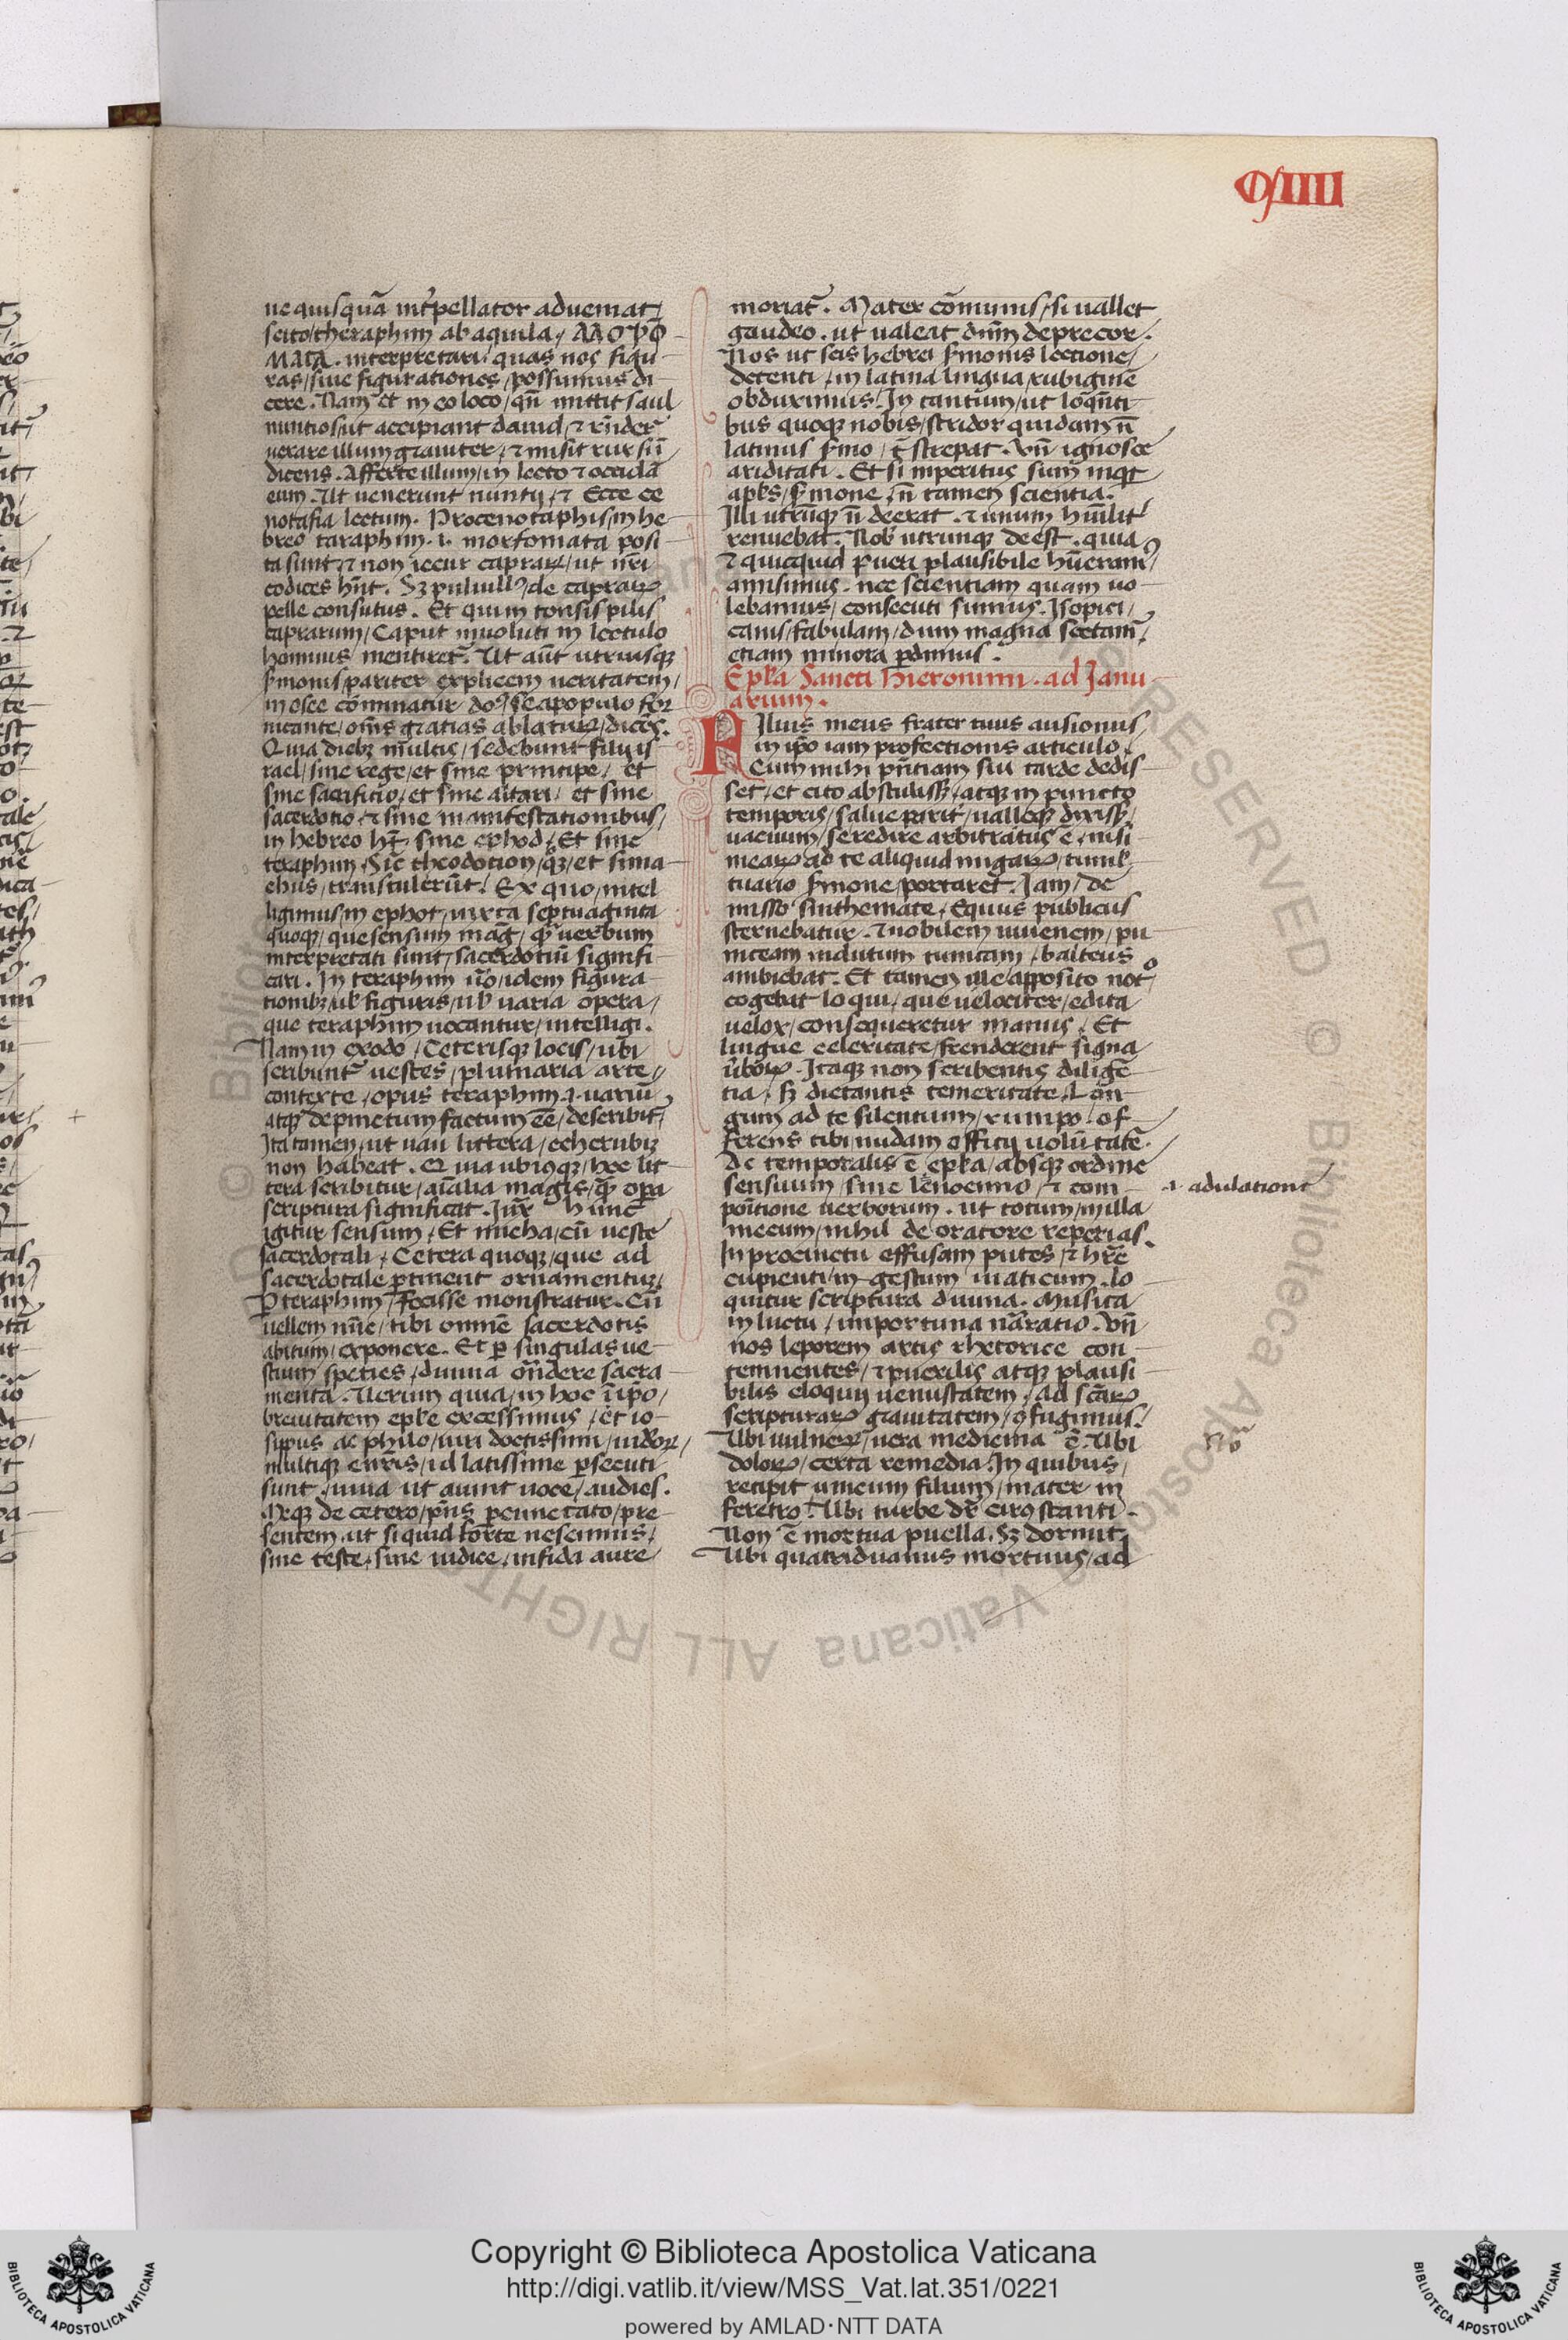 Ꝙ IIII
ne quisquā int̄pellator adueniat /
scito / theraphim ab aquila / ΜΟΡΦΩ
ΜΑΤΑ . interpretari / quas nos figu-
ras / siue figurationes / possumus di-
cere . Nam et in eo loco / qn̄ mittit saul
nuntios / ut accipiant dauid / ⁊ rn̄der̄
illum grauiter / ⁊ misit rursū
dicens . Afferte illum / in lecto ⁊ occidā
eum . Ut uenerunt nuntij / ⁊ Ecce ce
notafia lectum . Pro cenotaphis / in he-
breo taraphim . i . morfomata posi-
ta sunt / ⁊ non iecur capraꝝ / ut nr̄i
codices hn̄t . Sꝫ puluillꝰ / de capraꝝ
pelle consutus . Et qui intonsis pilis
caprarum / Caput inuoluti in lectulo
hominis mentiret̄ . Ut aūt utriusqꝫ
s̄monis / pariter explicem ueritatem /
in osee cōminatur dn̄s / Se a populo for
nicante / om̄s gratias ablaturꝝ / dicēs .
Quia diebꝫ multis / sedebunt filij is
rael / sine rege / et sine principe / et
sine sacrificio / et sine altari / et sine
sacerdotio / ⁊ sine manifestationibus /
in hebreo hꝫ / sine ephod / Et sine
teraphim / Sic̄ theodotion / qꝫ / et sima-
chus / transtulerūt / Ex quo / intel
ligimus / in ephot / iuxta septuaginta
quoqꝫ / que sensum mag̅ / qꝫ uerbum
interpretati sunt / sacerdotiū signifi-
cari . In teraphim ūo / idem figura-
tionibꝫ / ul̄ figuris / ul̄ uaria opera /
que teraphim uocantur / intelligi .
Nam in exodo / Ceterisqꝫ locis / ubi
scribunt̄ uestes / plumaria arte /
contexte / opus teraphim . i . uariū
atqꝫ depinctum factum ēē / describit̄ /
Ita tamen / ut uau littera / echerubiꝫ
non habeat . Quia ubicūqꝫ / hec lit-
tera scribitur / aīalia magis / qꝫ opa
scriptura significat . Iux̄ hunc
igitur sensum / Et micha / cū ueste
sacerdotali / Cetera quoqꝫ / que ad
sacerdotale ꝑtinent ornamentuꝫ /
ꝑ teraphim / Fecisse monstratur . Cū
uellem nūc / tibi omnē sacerdotis
abitum / exponere . Et ꝑ singulas ue-
stium species / diuina on̄dere sacra-
menta . Uerum quia / in hoc īpo /
breuitatem epl̄e excessimus / et io-
sipus ac philo / uiri doctissimi / iudeoꝝ /
multiqꝫ e nr̄is / id latissime ꝑsecuti
sunt / uiua ut aiunt uoce / audies .
Meqꝫ de cetero / pn̄s percunctato / pre-
sentem / ut si quid forte nescimus /
sine teste / sine iudice / in fida aure
moriat̄ . Mater cōmunis / si uallet
gaudeo . ut ualeat dn̄m deprecor .
Nos ut scis hebrei s̄monis lectione /
detenti / in latina lingua / rubiginē
obduximus . In tantum / ut loqn̄ti-
bus quoqꝫ nobis / stridor quidam n̄
latinus s̄mo / īstrepat . Un̄ ignosce
ariditati . Et si inperitus sum inqt
apl̄s / s̄mone / n̄ tamen scientia .
Illi utrūqꝫ n̄ deerat . ⁊ unum humilit̄
renuebat . Nob̄ utrunqꝫ deest . quia
⁊ quicquid pueri plausibile hūeramꝰ
amisimus . nec scientiam quam uo-
lebamus / consecuti sumus . Isopici /
canis / fabulam / dum magna sectamꝰ /
etiam minora ꝑdimus .
Epl̄a Sancti Hieronimi . ad Janu-
arium .
Filius meus frater tuus ausionius /
in ip̄o iam profectionis articulo /
Cum mihi pn̄tiam sui tarde dedis-
set / et cito abstulissꝫ / atqꝫ in puncto
temporis / salue parit̄ / ualleqꝫ dixissꝫ /
uacuum / se redire arbitratus ē / nisi
meaꝝ ad te aliquid nugaꝝ / tumul-
tuario s̄mone / portaret . Iam / de
misso sinthemate / Equus publicus
sternebatur . ⁊ nobilem iuuenem / pu-
niceam indutum tunicam / balteus
ambiebat . Et tamen ille / apposito notᵒ /
cogebat loqui / que uelociter / edita
uelox / consequeretur manus / Et
lingue celeritate / frenderent signa
ūboꝝ . Itaqꝫ non scribentis diligē-
tia / sꝫ dictantis temeritate / Lon-
gum ad te silentium / rumpo / of-
ferens tibi / nudam officij uolūtatē .
de temporalis ē epl̄a / absqꝫ ordine
sensuum / sine lenocinio / ⁊ com-
poītione uerborum . ut totum / in illa
mecum / nihil de oratore reperias .
In procinctu effusam putes / ⁊ hr̄e
cupienti / in gestum uiaticum . lo-
quitur scriptura diuina . Musica
in luctu / importuna nar̄ratio . Un̄
nos leporem artis rhetorice con-
temnentes / ⁊ puerilis atqꝫ plausi-
bilis eloquij uenustatem / ad scāꝝ
scripturaꝝ grauitatem / ꝯfugimus .
Ubi uulneꝝ / uera medicina ē . Ubi
doloꝝ / certa remedia . In quibus /
recipit unicum filium / mater in
feretro . Ubi turbe dr̄ circūstanti .
Non ē mortua puella . Sꝫ dormit
Ubi quatriduanus mortuus / ad
.i. adulatione
Copyright © Biblioteca Apostolica Vaticana
http://digi.vatlib.it/view/MSS_Vat.lat.351/0221
powered by AMLAD·NTT DATA